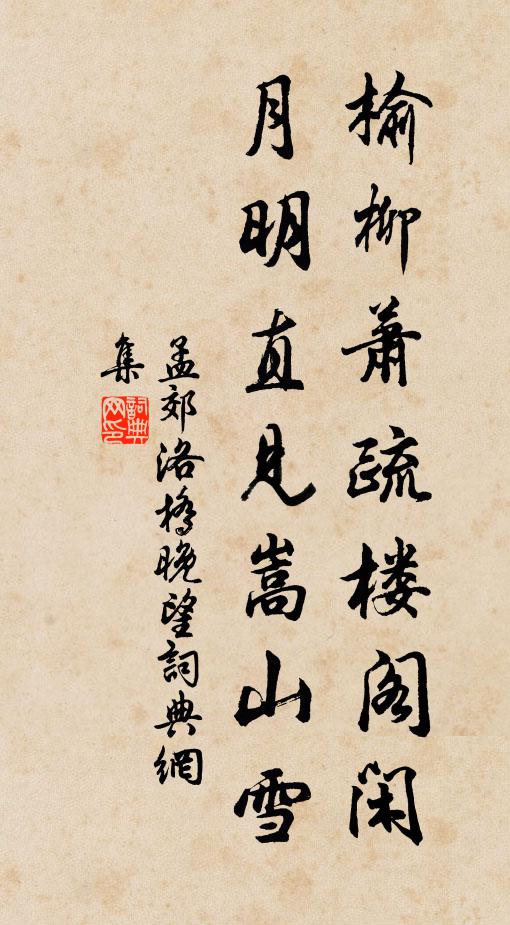 榆柳萧疏楼阁闲
月明直见嵩山雪
孟郊洛橋晚望詞典網
集
詞典网印